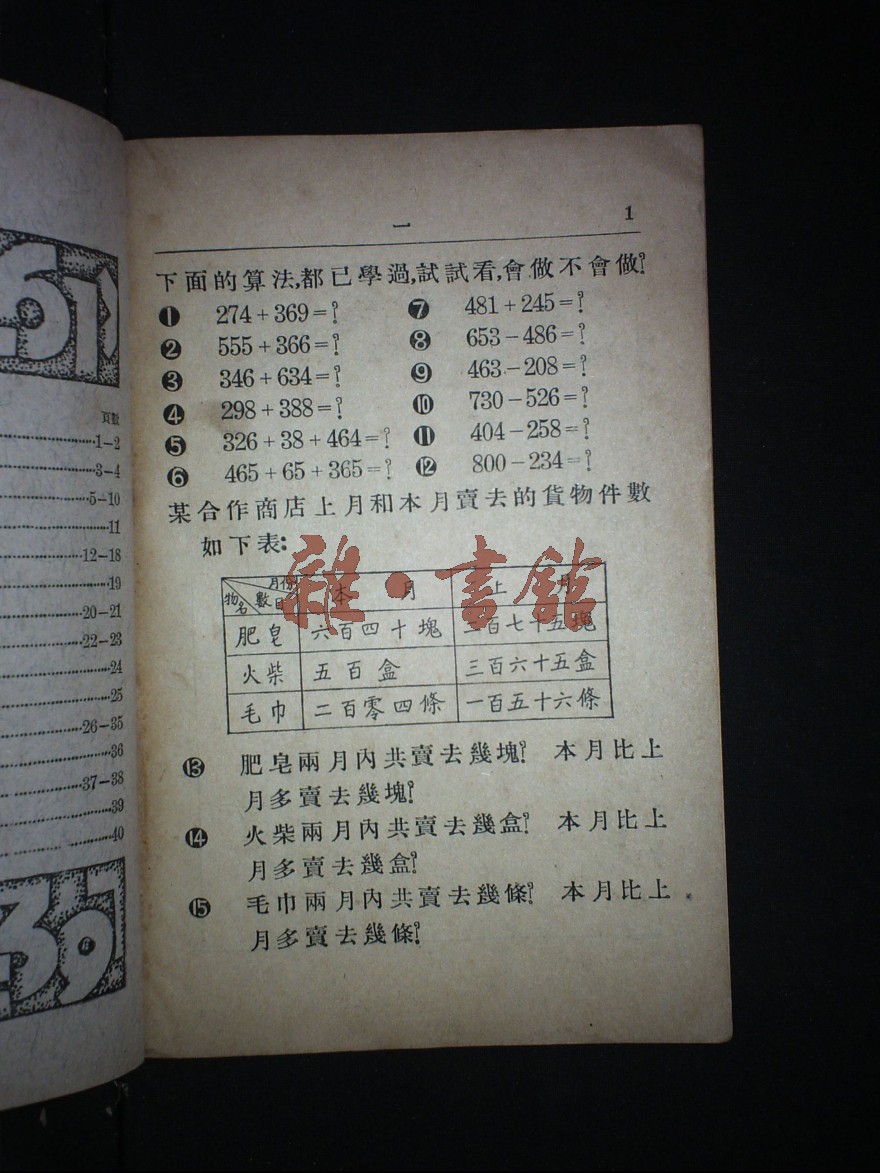 頁數
1-2
3-4
5-10
11
12-18
19
20-21
22-23
24
25
26-35
36
37-38
39
40
一 1
下面的算法,都已學過,試試看,會做不會做?
❶ 274+369=? ❼ 481+245=?
❷ 555+366=? ❽ 653-486=?
❸ 346+634=? ❾ 463-208=?
❹ 298+388=? ❿ 730-526=?
❺ 326+38+464=? ⓫ 404-258=?
❻ 465+65+365=? ⓬ 800-234=?
某合作商店上月和本月賣去的貨物件數
如下表:
雜·書館
物名 數目 月份 本月 上月
肥皂 六百四十塊 百七十五塊
火柴 五百盒 三百六十五盒
毛巾 二百零四條 一百五十六條
⓭ 肥皂兩月內共賣去幾塊? 本月比上
月多賣去幾塊?
⓮ 火柴兩月內共賣去幾盒? 本月比上
月多賣去幾盒?
⓯ 毛巾兩月內共賣去幾條? 本月比上
月多賣去幾條?